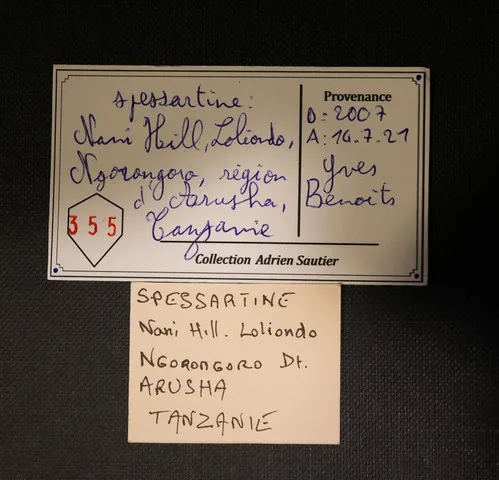 spessartine:
Nani Hill, Loliondo,
Ngorongoro, région
d'Arusha,
Tanzanie
355
Provenance
D: 2007
A: 14.7.21
Yves
Benoits
Collection Adrien Sautier
SPESSARTINE
Nani Hill. Loliondo
NGORONGORO Dt.
ARUSHA
TANZANIE